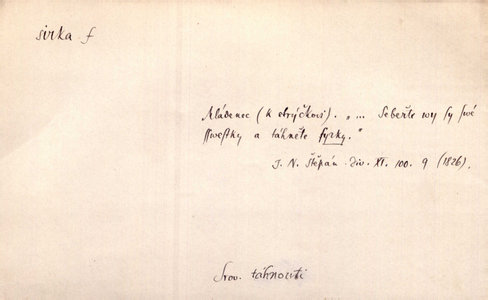 sirka f
Mládenec (k strýčkovi). „... Seberte wy sy swé
sswestky a táhněte syrky."
J. N. Štěpán. div. XI. 100. 9 (1826).
Srov. táhnouti